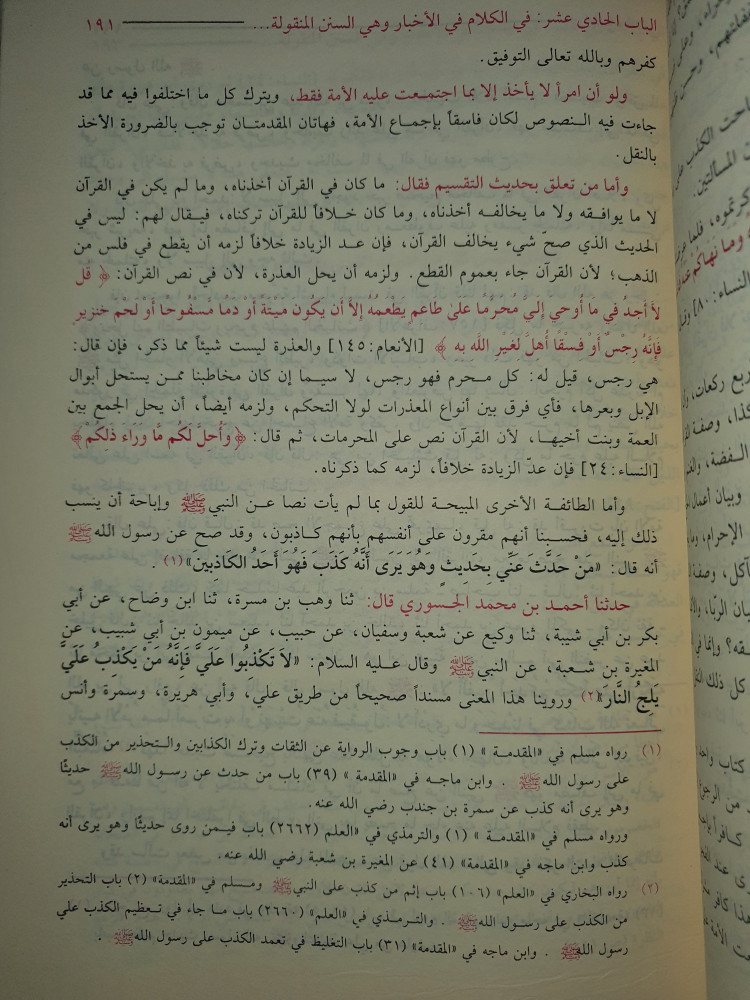 الباب الحادي عشر: في الكلام في الأخبار وهي السنن المنقولة... ١٩١
كفرهم وبالله تعالى التوفيق.
ولو أن امرأ لا يأخذ إلا بما اجتمعت عليه الأمة فقط، ويترك كل ما اختلفوا فيه مما قد
جاءت فيه النصوص لكان فاسقاً بإجماع الأمة، فهاتان المقدمتان توجب بالضرورة الأخذ
بالنقل.
وأما من تعلق بحديث التقسيم فقال: ما كان في القرآن أخذناه، وما لم يكن في القرآن
لا ما يوافقه ولا ما يخالفه أخذناه، وما كان خلافاً للقرآن تركناه، فيقال لهم: ليس في
الحديث الذي صحّ شيء يخالف القرآن، فإن عد الزيادة خلافاً لزمه أن يقطع في فلس من
الذهب؛ لأن القرآن جاء بعموم القطع. ولزمه أن يحل العذرة، لأن في نص القرآن: ﴿ قُل
لاَّ أَجِدُ فِي مَا أُوحِيَ إِلَيَّ مُحَرَّمًا عَلَىٰ طَاعِمٍ يَطْعَمُهُ إِلاَّ أَن يَكُونَ مَيْتَةً أَوْ دَمًا مَّسْفُوحًا أَوْ لَحْمَ خِنزِيرٍ
فَإِنَّهُ رِجْسٌ أَوْ فِسْقًا أُهِلَّ لِغَيْرِ اللَّهِ بِهِ ﴾ [الأنعام:١٤٥] والعذرة ليست شيئاً مما ذكر، فإن قال:
هي رجس، قيل له: كل محرم فهو رجس، لا سيما إن كان مخاطبنا ممن يستحل أبوال
الإبل وبعرها، فأي فرق بين أنواع المعذرات لولا التحكم، ولزمه أيضاً، أن يحل الجمع بين
العمة وبنت أخيها، لأن القرآن نص على المحرمات، ثم قال: ﴿وَأُحِلَّ لَكُم مَّا وَرَاءَ ذَٰلِكُمْ﴾
[النساء:٢٤] فإن عدّ الزيادة خلافاً، لزمه كما ذكرناه.
وأما الطائفة الأخرى المبيحة للقول بما لم يأت نصا عن النبي ﷺ وإباحة أن ينسب
ذلك إليه، فحسبنا أنهم مقرون على أنفسهم بأنهم كاذبون، وقد صح عن رسول الله ﷺ
أنه قال: «مَنْ حَدَّثَ عَنِّي بِحَدِيثٍ وَهُوَ يَرَى أَنَّهُ كَذَبَ فَهُوَ أَحَدُ الكَاذِبِينَ»(١) .
حدثنا أحمد بن محمد الجسوري قال: ثنا وهب بن مسرة، ثنا ابن وضاح، عن أبي
بكر بن أبي شيبة، ثنا وكيع عن شعبة وسفيان، عن حبيب، عن ميمون بن أبي شبيب، عن
المغيرة بن شعبة، عن النبي ﷺ وقال عليه السلام: «لاَ تَكْذِبُوا عَلَيَّ فَإِنَّهُ مَنْ يَكْذِبُ عَلَيَّ
يَلِجُ النَّارَ»(٢) وروينا هذا المعنى مسنداً صحيحاً من طريق علي، وأبي هريرة، وسمرة وأنس
(١) رواه مسلم في «المقدمة » (١) باب وجوب الرواية عن الثقات وترك الكذابين والتحذير من الكذب
على رسول الله ﷺ . وابن ماجه في «المقدمة » (٣٩) باب من حدث عن رسول الله ﷺ حديثًا
وهو يرى أنه كذب عن سمرة بن جندب رضي الله عنه.
ورواه مسلم في «المقدمة » (١) والترمذي في «العلم (٢٦٦٢) باب فيمن روى حديثًا وهو يرى أنه
كذب وابن ماجه في «المقدمة» (٤١) عن المغيرة بن شعبة رضي الله عنه.
(٢) رواه البخاري في «العلم» (١٠٦) باب إثم من كذب على النبي ﷺ ومسلم في «المقدمة» (٢) باب التحذير
من الكذب على رسول الله ﷺ . والترمذي في «العلم» (٢٦٦٠) باب ما جاء في تعظيم الكذب على
رسول الله ﷺ . وابن ماجه في «المقدمة» (٣١) باب التغليظ في تعمد الكذب على رسول الله ﷺ .